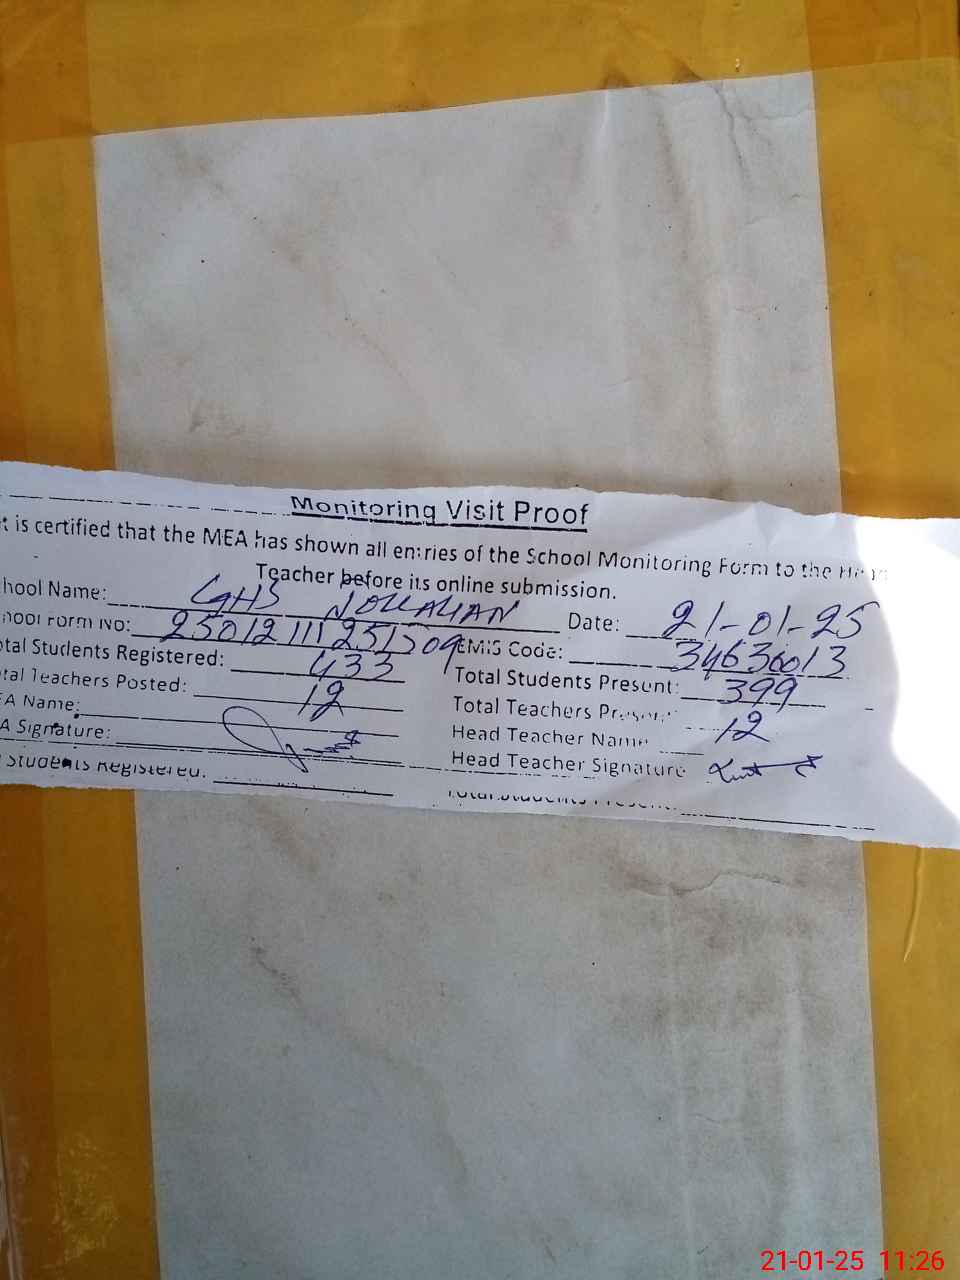 Monitoring Visit Proof
t is certified that the MEA has shown all entries of the School Monitoring Form to the
Teacher before its online submission.
hool Name: GHS Date: 21-01-25
hool Form No: 25012111251509 EMIS Code: 34636013
tal Students Registered: 433 Total Students Present: 399
tal Teachers Posted: 12 Total Teachers Present 12
EA Name: Head Teacher Name
A Signature: Head Teacher Signature
Students Registered: Total Students Present:
21-01-25 11:26